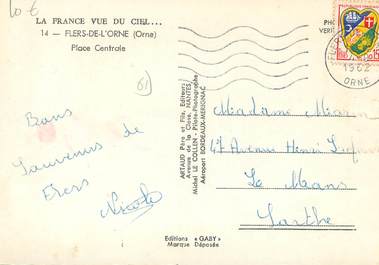 10 €
LA FRANCE VUE DU CIEL...
14 — FLERS-DE-L'ORNE (Orne)
Place Centrale
61
Bons
Souvenirs de
Flers
Nicole
ARTAUD Père et Fils, Editeurs
Avenue de la Close, NANTES
Michel LE COLLEN - Pilote-Photographe
Aéroport BORDEAUX-MERIGNAC
Editions « GABY »
Marque Déposée
1962
ORNE
Madame
Avenue Henri
Le Mans
Sarthe